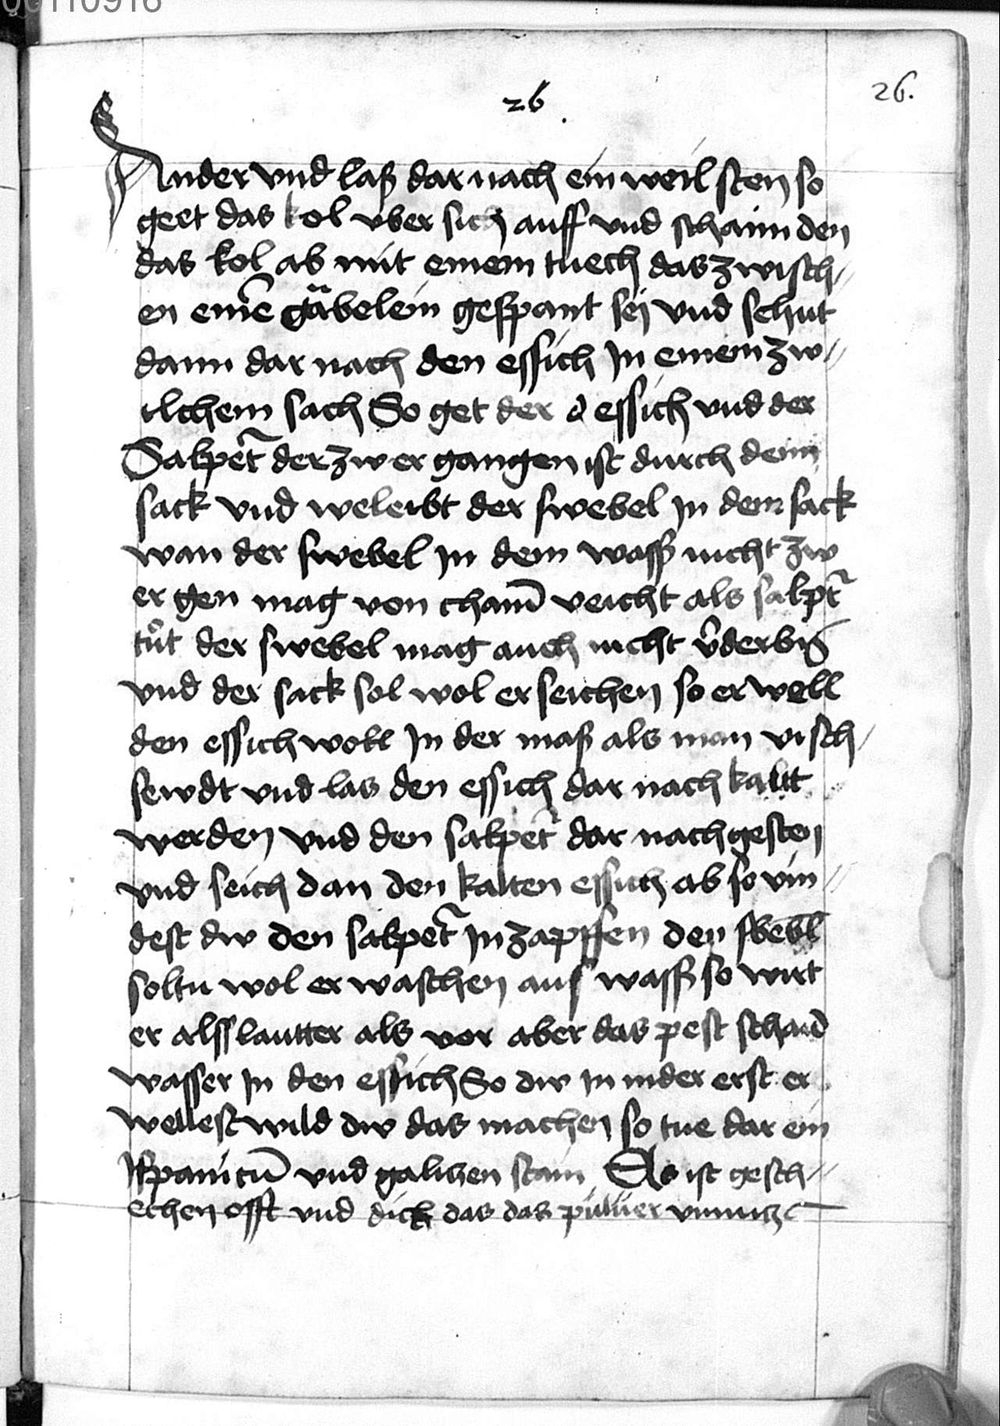 00110916
26.
26.
Ander vnd laß dar nach ein weil sten so
geet das kol vber sich auff vnd schaim den
das kol ab mit einem tuech das zwisch//
en eine gäbelein gespant sej vnd schut
dann dar nach den essich In einem zw//
ilchem sach So get der essich vnd der
Salpet der zwer gangen ist durch denn
sack vnd weleibt der swebel In dem sack
wan der swebel In dem wass nicht zw
er gen mag von cham veicht als salpt
tut der swebel mag auch nicht vderbn
vnd der sack sol wol er seichen so er well
den essich woll In der maß als man visch/
sewdt vnd las den essich dar nach kaltt
werden vnd den salpet dar nach gesten
vnd seich dan den kalten essich ab so vin//
dest dw den salpet In zapffen den sbebl
soltu wol er waschen aus wass so wirt
er alss lautter als vor aber das pest schaid
wasser In den essich So dw in inder erst er
wellest wild dw das machen so tue dar ein
Ispanicu vnd galitzen stain Es ist gesch//
echen offt vnd dick das das puluer vnnutz